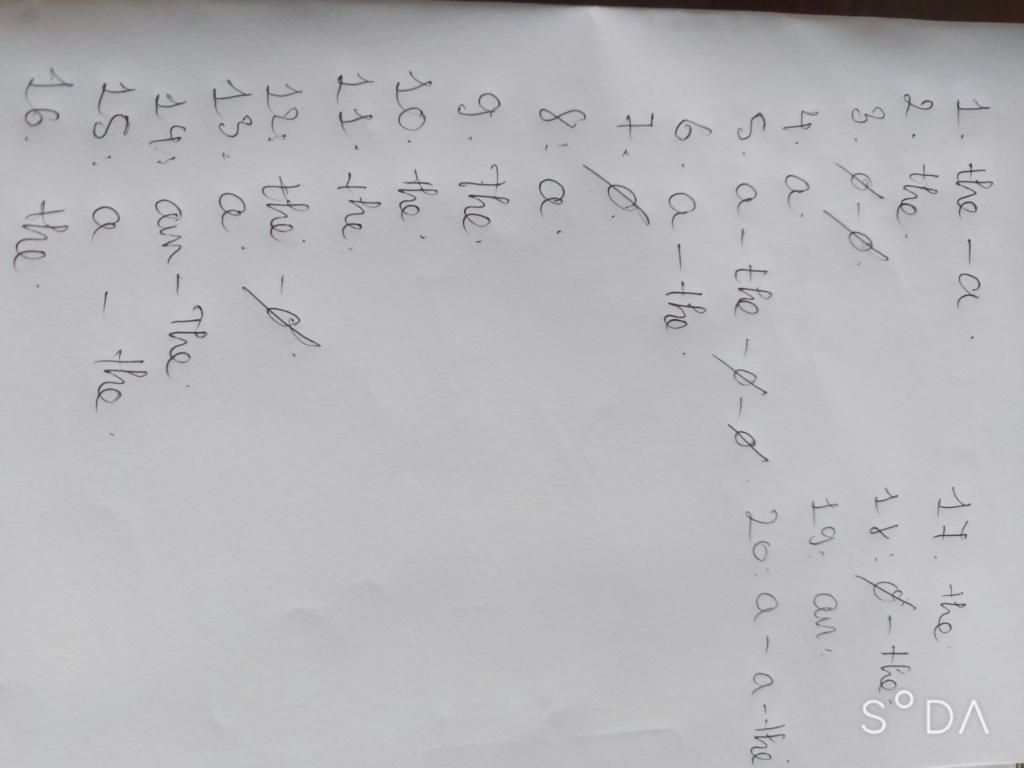 1. the - a.
2. the.
3. ∅ - ∅.
4. a.
5. a - the - ∅ - ∅.
6. a - the.
7. ∅.
8: a.
9. The.
10. the.
11. the.
12: the - ∅.
13: a.
14: an - The.
15: a - the.
16. the.
17. the.
18: ∅ - the.
19: an.
20: a - a - the
SODA